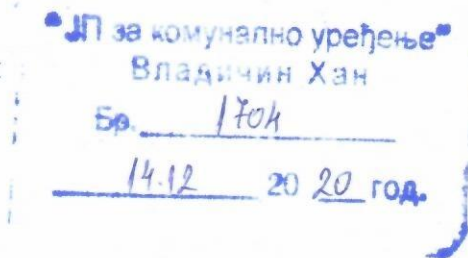 "ЈП за комунално уређење"
Владичин Хан
Бр. 1704
14.12 20 20 год.